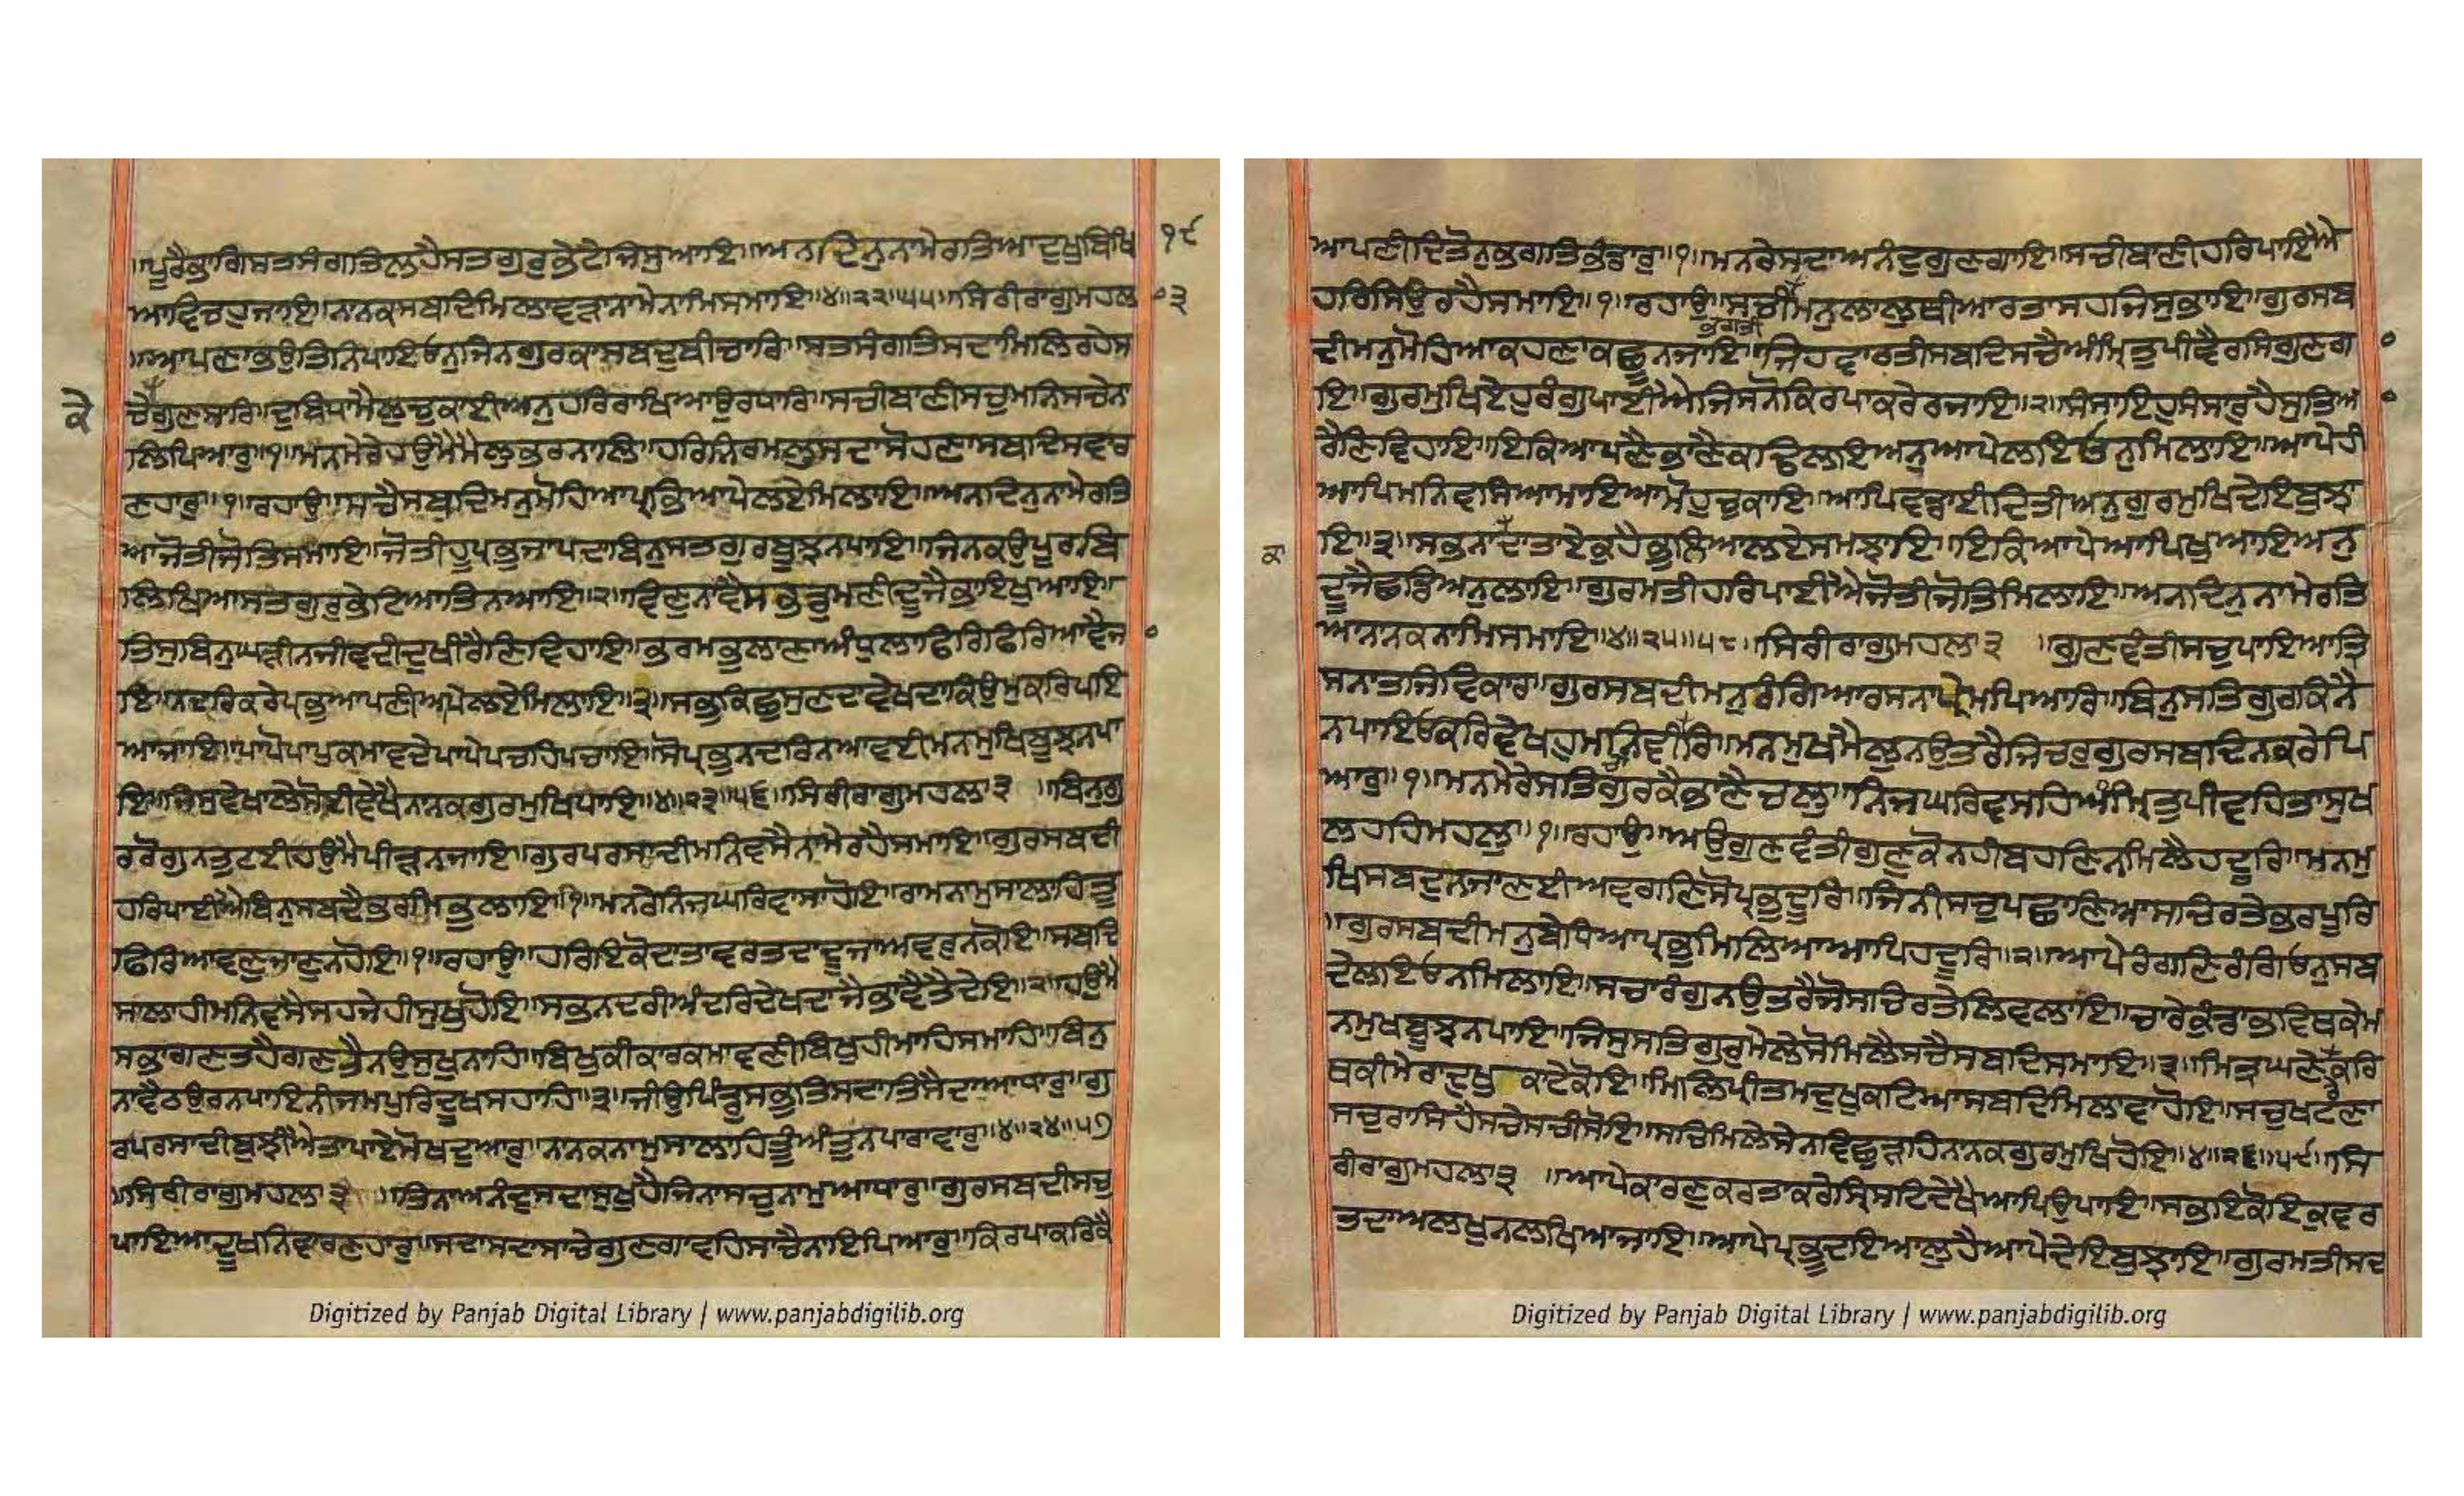 ॥ਪੂਰੈਭਾਗਿਸਤਸੰਗਤਿਲਹੈਸਤਗੁਰੁਭੇਟੈਜਿਸੁਆਇ॥ਅਨਦਿਨੁਨਾਮੇਰਤਿਆਦੁਖੁਬਿਖਿ ੧੯
ਆਵਿਚਹੁਜਾਇ॥ਨਾਨਕਸਬਦਿਮਿਲਾਵੜਾਨਾਮੇਨਾਮਿਸਮਾਇ॥੪॥੨੨॥੫੫॥ਸਿਰੀਰਾਗੁਮਹਲਾ ੩
॥ਆਪਣਾਭਉਤਿਨਿਪਾਇਓਨੁਜਿਨਗੁਰਕਾਸਬਦੁਬੀਚਾਰਿ॥ਸਤਸੰਗਤਿਸਦਾਮਿਲਿਰਹੇਸ
ਕੇ ਚੇਗੁਣਸਾਰਿ॥ਦੁਬਿਧਾਮੈਲੁਚੁਕਾਈਅਨੁਹਰਿਰਾਖਿਆਉਰਧਾਰਿ॥ਸਚੀਬਾਣੀਸਚੁਮਨਿਸਚੇਨਾ
ਲਿਪਿਆਰੁ॥੧॥ਮਨਮੇਰੇਹਉਮੈਮੈਲੁਭਰਨਾਲਿ॥ਹਰਿਨਿਰਮਲੁਸਦਾਸੋਹਣਾਸਬਦਿਸਵਾਰ
ਣਹਾਰੁ॥੧॥ਰਹਾਉ॥ਸਚੈਸਬਦਿਮਨੁਮੋਹਿਆਪ੍ਰਭਿਆਪੇਲਏਮਿਲਾਇ॥ਅਨਦਿਨੁਨਾਮੇਰਤਿ
ਆਜੋਤੀਜੋਤਿਸਮਾਇ॥ਜੋਤੀਹੂਪ੍ਰਭੁਜਾਪਦਾਬਿਨੁਸਤਗੁਰਬੂਝਨਪਾਇ॥ਜਿਨਕਉਪੂਰਬਿ
ਲਿਖਿਆਸਤਗੁਰੁਭੇਟਿਆਤਿਨਆਇ॥੨॥ਵਿਣੁਨਾਵੈਸਭਡੁਮਣੀਦੂਜੈਭਾਇਖੁਆਇ॥
ਤਿਸੁਬਿਨੁਘੜੀਨਜੀਵਦੀਦੁਖੀਰੈਣਿਵਿਹਾਇ॥ਭਰਮਭੁਲਾਣਾਅੰਧੁਲਾਫਿਰਿਫਿਰਿਆਵੈਜਾ
ਇ॥ਨਦਰਿਕਰੇਪ੍ਰਭੁਆਪਣੀਆਪੇਲਏਮਿਲਾਇ॥੩॥ਸਭੁਕਿਛੁਸੁਣਦਾਵੇਖਦਾਕਿਉਮੁਕਰਿਪਇ
ਆਜਾਇ॥ਪਾਪੋਪਾਪੁਕਮਾਵਦੇਪਾਪੇਪਚਹਿਪਚਾਇ॥ਸੋਪ੍ਰਭੁਨਦਰਿਨਆਵਈਮਨਮੁਖਿਬੂਝਨਪਾ
ਇ॥ਜਿਸੁਵੇਖਾਲੇਸੋਈਵੇਖੈਨਾਨਕਗੁਰਮੁਖਿਪਾਇ॥੪॥੨੩॥੫੬॥ਸਿਰੀਰਾਗੁਮਹਲਾ੩ ॥ਬਿਨੁਗੁ
ਰਰੋਗੁਨਤੁਟਈਹਉਮੈਪੀੜਨਜਾਇ॥ਗੁਰਪਰਸਾਦੀਮਨਿਵਸੈਨਾਮੇਰਹੈਸਮਾਇ॥ਗੁਰਸਬਦੀ
ਹਰਿਪਾਈਐਬਿਨੁਸਬਦੈਭਰਮਿਭੁਲਾਇ॥੧॥ਮਨਰੇਨਿਜਘਰਿਵਾਸਾਹੋਇ॥ਰਾਮਨਾਮੁਸਾਲਾਹਿਤੂ
ਫਿਰਿਆਵਣੁਜਾਣੁਨਹੋਇ॥੧॥ਰਹਾਉ॥ਹਰਿਇਕੋਦਾਤਾਵਰਤਦਾਦੂਜਾਅਵਰੁਨਕੋਇ॥ਸਬਦਿ
ਸਾਲਾਹੀਮਨਿਵਸੈਸਹਜੇਹੀਸੁਖੁਹੋਇ॥ਸਭਨਦਰੀਅੰਦਰਿਦੇਖਦਾਜੈਭਾਵੈਤੈਦੇਇ॥੨॥ਹਉਮੈ
ਸਭਾਗਣਤਹੈਗਣਤੈਨਉਸੁਖੁਨਾਹਿ॥ਬਿਖੁਕੀਕਾਰਕਮਾਵਣੀਬਿਖੁਹੀਮਾਹਿਸਮਾਹਿ॥ਬਿਨੁ
ਨਾਵੈਠਉਰਨਪਾਇਨੀਜਮਪੁਰਿਦੂਖਸਹਾਹਿ॥੩॥ਜੀਉਪਿੰਡੁਸਭੁਤਿਸਦਾਤਿਸੈਦਾਆਧਾਰੁ॥ਗੁ
ਰਪਰਸਾਦੀਬੁਝੀਐਤਾਪਾਏਮੋਖਦੁਆਰੁ॥ਨਾਨਕਨਾਮੁਸਾਲਾਹਿਤੂੰਅੰਤੁਨਪਾਰਾਵਾਰੁ॥੪॥੨੪॥੫੭
॥ਸਿਰੀਰਾਗੁਮਹਲਾ੩ ॥ਤਿਨਾਅਨੰਦੁਸਦਾਸੁਖੁਹੈਜਿਨਾਸਚੁਨਾਮੁਆਧਾਰੁ॥ਗੁਰਸਬਦੀਸਚੁ
ਪਾਇਆਦੂਖਨਿਵਾਰਣਹਾਰੁ॥ਸਦਾਸਦਾਸਾਚੇਗੁਣਗਾਵਹਿਸਾਚੈਨਾਇਪਿਆਰੁ॥ਕਿਰਪਾਕਰਿਕੈ
Digitized by Panjab Digital Library | www.panjabdigilib.org
ਆਪਣੀਦਿਤੋਨੁਭਗਤਿਭੰਡਾਰੁ॥੧॥ਮਨਰੇਸਦਾਅਨੰਦੁਗੁਣਗਾਇ॥ਸਚੀਬਾਣੀਹਰਿਪਾਈਐ
ਹਰਿਸਿਉਰਹੈਸਮਾਇ॥੧॥ਰਹਾਉ॥ਸਚੀਮਨੁਲਾਲੁਥੀਆਰਤਾਸਹਜਿਸੁਭਾਇ॥ਗੁਰਸਬ
ਭਗਤੀ
ਦੀਮਨੁਮੋਹਿਆਕਹਣਾਕਛੂਨਜਾਇ॥ਜਿਹਵਾਰਤੀਸਬਦਿਸਚੈਅੰਮ੍ਰਿਤੁਪੀਵੈਰਸਿਗੁਣਗਾ
ਇ॥ਗੁਰਮੁਖਿਏਹੁਰੰਗੁਪਾਈਐਜਿਸਨੋਕਿਰਪਾਕਰੇਰਜਾਇ॥੨॥ਸੰਸਾਇਹੁਸੰਸਾਰੁਹੈਸੁਤਿਆ
ਰੈਣਿਵਿਹਾਇ॥ਇਕਿਆਪਣੈਭਾਣੈਕਢਿਲਇਅਨੁਆਪੇਲਇਓਨੁਮਿਲਾਇ॥ਆਪੇਹੀ
ਆਪਿਮਨਿਵਸਿਆਮਾਇਆਮੋਹੁਚੁਕਾਇ॥ਆਪਿਵਡਾਈਦਿਤੀਅਨੁਗੁਰਮੁਖਿਦੇਇਬੁਝਾ
ਕਾ ਇ॥੩॥ਸਭਨਾਦਾਤਾਏਕੁਹੈਭੁਲਿਆਲਏਸਮਝਾਇ॥ਇਕਿਆਪੇਆਪਿਖੁਆਇਅਨੁ
ਦੂਜੈਛਡਿਅਨੁਲਾਇ॥ਗੁਰਮਤੀਹਰਿਪਾਈਐਜੋਤੀਜੋਤਿਮਿਲਾਇ॥ਅਨਦਿਨੁਨਾਮੇਰਤਿ
ਆਨਾਨਕਨਾਮਿਸਮਾਇ॥੪॥੨੫॥੫੮॥ਸਿਰੀਰਾਗੁਮਹਲਾ੩ ॥ਗੁਣਵੰਤੀਸਚੁਪਾਇਆਤ੍ਰਿ
ਸਨਾਤਜਿਵਿਕਾਰ॥ਗੁਰਸਬਦੀਮਨੁਰੰਗਿਆਰਸਨਾਪ੍ਰੇਮਪਿਆਰਿ॥ਬਿਨੁਸਤਿਗੁਰਕਿਨੈ
ਨਪਾਇਓਕਰਿਵੇਖਹੁਮਨਿਵੀਚਾਰਿ॥ਮਨਮੁਖਮੈਲੁਨਉਤਰੈਜਿਚਰੁਗੁਰਸਬਦਿਨਕਰੇਪਿ
ਆਰੁ॥੧॥ਮਨਮੇਰੇਸਤਿਗੁਰਕੈਭਾਣੈਚਲੁ॥ਨਿਜਘਰਿਵਸਹਿਅੰਮ੍ਰਿਤੁਪੀਵਹਿਤਾਸੁਖ
ਲਹਹਿਮਹਲੁ॥੧॥ਰਹਾਉ॥ਅਉਗੁਣਵੰਤੀਗੁਣੁਕੋਨਹੀਬਹਣਿਨਮਿਲੈਹਦੂਰਿ॥ਮਨਮੁ
ਖਿਸਬਦੁਨਜਾਣਈਅਵਗਣਿਸੋਪ੍ਰਭੁਦੂਰਿ॥ਜਿਨੀਸਚੁਪਛਾਣਿਆਸਚਿਰਤੇਭਰਪੂਰਿ
॥ਗੁਰਸਬਦੀਮਨੁਬੇਧਿਆਪ੍ਰਭੁਮਿਲਿਆਆਪਿਹਦੂਰਿ॥੨॥ਆਪੇਰੰਗਣਿਰੰਗਿਓਨੁਸਬ
ਦੇਲਾਇਓਨੁਮਿਲਾਇ॥ਸਚਾਰੰਗੁਨਉਤਰੈਜੋਸਚਿਰਤੇਲਿਵਲਾਇ॥ਚਾਰੇਕੁੰਡਾਭਵਿਥਕੇਮ
ਨਮੁਖਬੂਝਨਪਾਇ॥ਜਿਸੁਸਤਿਗੁਰੁਮੇਲੇਸੋਮਿਲੈਸਚੈਸਬਦਿਸਮਾਇ॥੩॥ਮਿਤ੍ਰਘਣੇਰੇਕਰਿ
ਥਕੀਮੇਰਾਦੁਖੁ ਕਾਟੈਕੋਇ॥ਮਿਲਿਪ੍ਰੀਤਮਦੁਖੁਕਟਿਆਸਬਦਿਮਿਲਾਵਾਹੋਇ॥ਸਚੁਖਟਣਾ
ਸਚੁਰਾਸਿਹੈਸਚੇਸਚੀਸੋਇ॥ਸਚਿਮਿਲੇਸੇਨਵਿਛੁੜਹਿਨਾਨਕਗੁਰਮੁਖਿਹੋਇ॥੪॥੨੬॥੫੯॥ਸਿ
ਰੀਰਾਗੁਮਹਲਾ੩ ॥ਆਪੇਕਾਰਣੁਕਰਤਾਕਰੇਸ੍ਰਿਸਟਿਦੇਖੈਆਪਿਉਪਾਇ॥ਸਭਇਕੋਇਕੁਵਰ
ਤਦਾਅਲਖੁਨਲਖਿਆਜਾਇ॥ਆਪੇਪ੍ਰਭੂਦਇਆਲੁਹੈਆਪੇਦੇਇਬੁਝਾਇ॥ਗੁਰਮਤੀਸਦ
Digitized by Panjab Digital Library | www.panjabdigilib.org